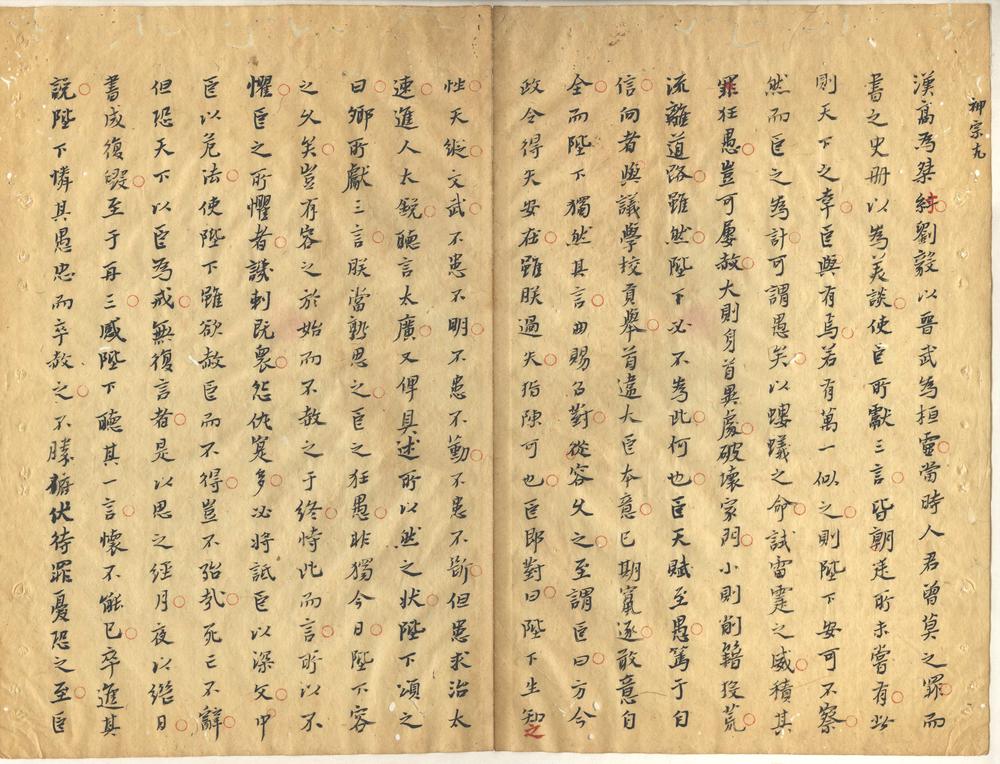 神宗九
漢高為桀紂劉毅以晉武為桓靈當時人君曾莫之罪而
書之史册以為美談使臣所獻三言皆朝廷所未嘗有此
則天下之幸臣與有焉若有萬一似之則陛下安可不察
然而臣之為計可謂愚矣以螻蟻之命試雷霆之威積其
罪狂愚豈可屢赦大則身首異處破壞家門小則削籍投荒
流離道路雖然陛下必不為此何也臣天賦至愚篤于自
信向者與議學校貢舉首違大臣本意已期竄逐敢意自
全而陛下獨然其言曲賜召對從容久之至謂臣曰方今
政令得失安在雖朕過失指陳可也臣即對曰陛下生知之
性天縱文武不患不明不患不勤不患不斷但患求治太
速進人太銳聽言太廣又俾具述所以然之狀陛下頷之
曰卿所獻三言朕當熟思之臣之狂愚非獨今日陛下容
之久矣豈有容之於始而不赦之于終恃此而言所以不
懼臣之所懼者譏刺既衆怨仇寔多必將詆臣以深文中
臣以危法使陛下雖欲赦臣而不得豈不殆哉死亡不辭
但恐天下以臣為戒無復言者是以思之經月夜以繼日
書成復毀至于再三感陛下聽其一言懷不能已卒進其
說陛下憐其愚忠而卒赦之不勝摭伏待罪憂恐之至臣